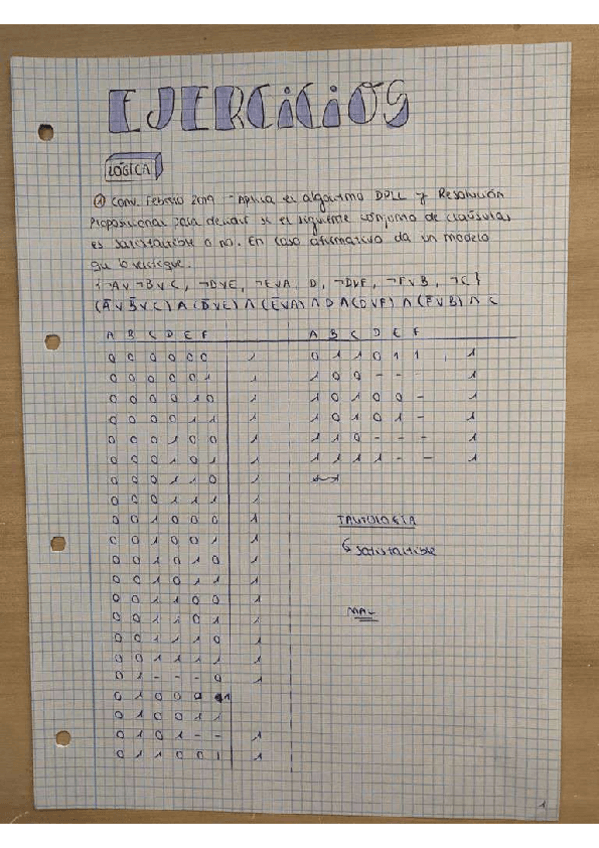 EJERCICIOS
LÓGICA
① Conv. Febrero 2019 - Aplica el algoritmo DPLL y Resolución
Proposicional para decidir si el siguiente conjunto de cláusulas
es satisfactible o no. En caso afirmativo da un modelo
que lo verifique.
{¬A∨¬B∨C, ¬D∨E, ¬E∨A, D, ¬D∨F, ¬F∨B, ¬C}
(A̅∨B̅∨C) ∧ (D̅∨E) ∧ (E̅∨A) ∧ D ∧ (D̅∨F) ∧ (F̅∨B) ∧ C
A B C D E F A B C D E F
0 0 0 0 0 0 1 0 1 1 0 1 1 1
0 0 0 0 0 1 1 1 0 0 - - - 1
0 0 0 0 1 0 1 1 0 1 0 0 - 1
0 0 0 0 1 1 1 1 0 1 0 1 - 1
0 0 0 1 0 0 1 1 1 0 - - - 1
0 0 0 1 0 1 1 1 1 1 1 - - 1
0 0 0 1 1 0 1
0 0 0 1 1 1 1
0 0 1 0 0 0 1 TAUTOLOGÍA
0 0 1 0 0 1 1
0 0 1 0 1 0 1 ↳ Satisfactible
0 0 1 0 1 1 1
0 0 1 1 0 0 1
0 0 1 1 0 1 1 MAL
0 0 1 1 1 0 1
0 0 1 1 1 1 1
0 1 - - - 0 1
0 1 0 0 0 1
0 1 0 0 1 1
0 1 0 1 - - 1
0 1 1 0 0 1 1
1